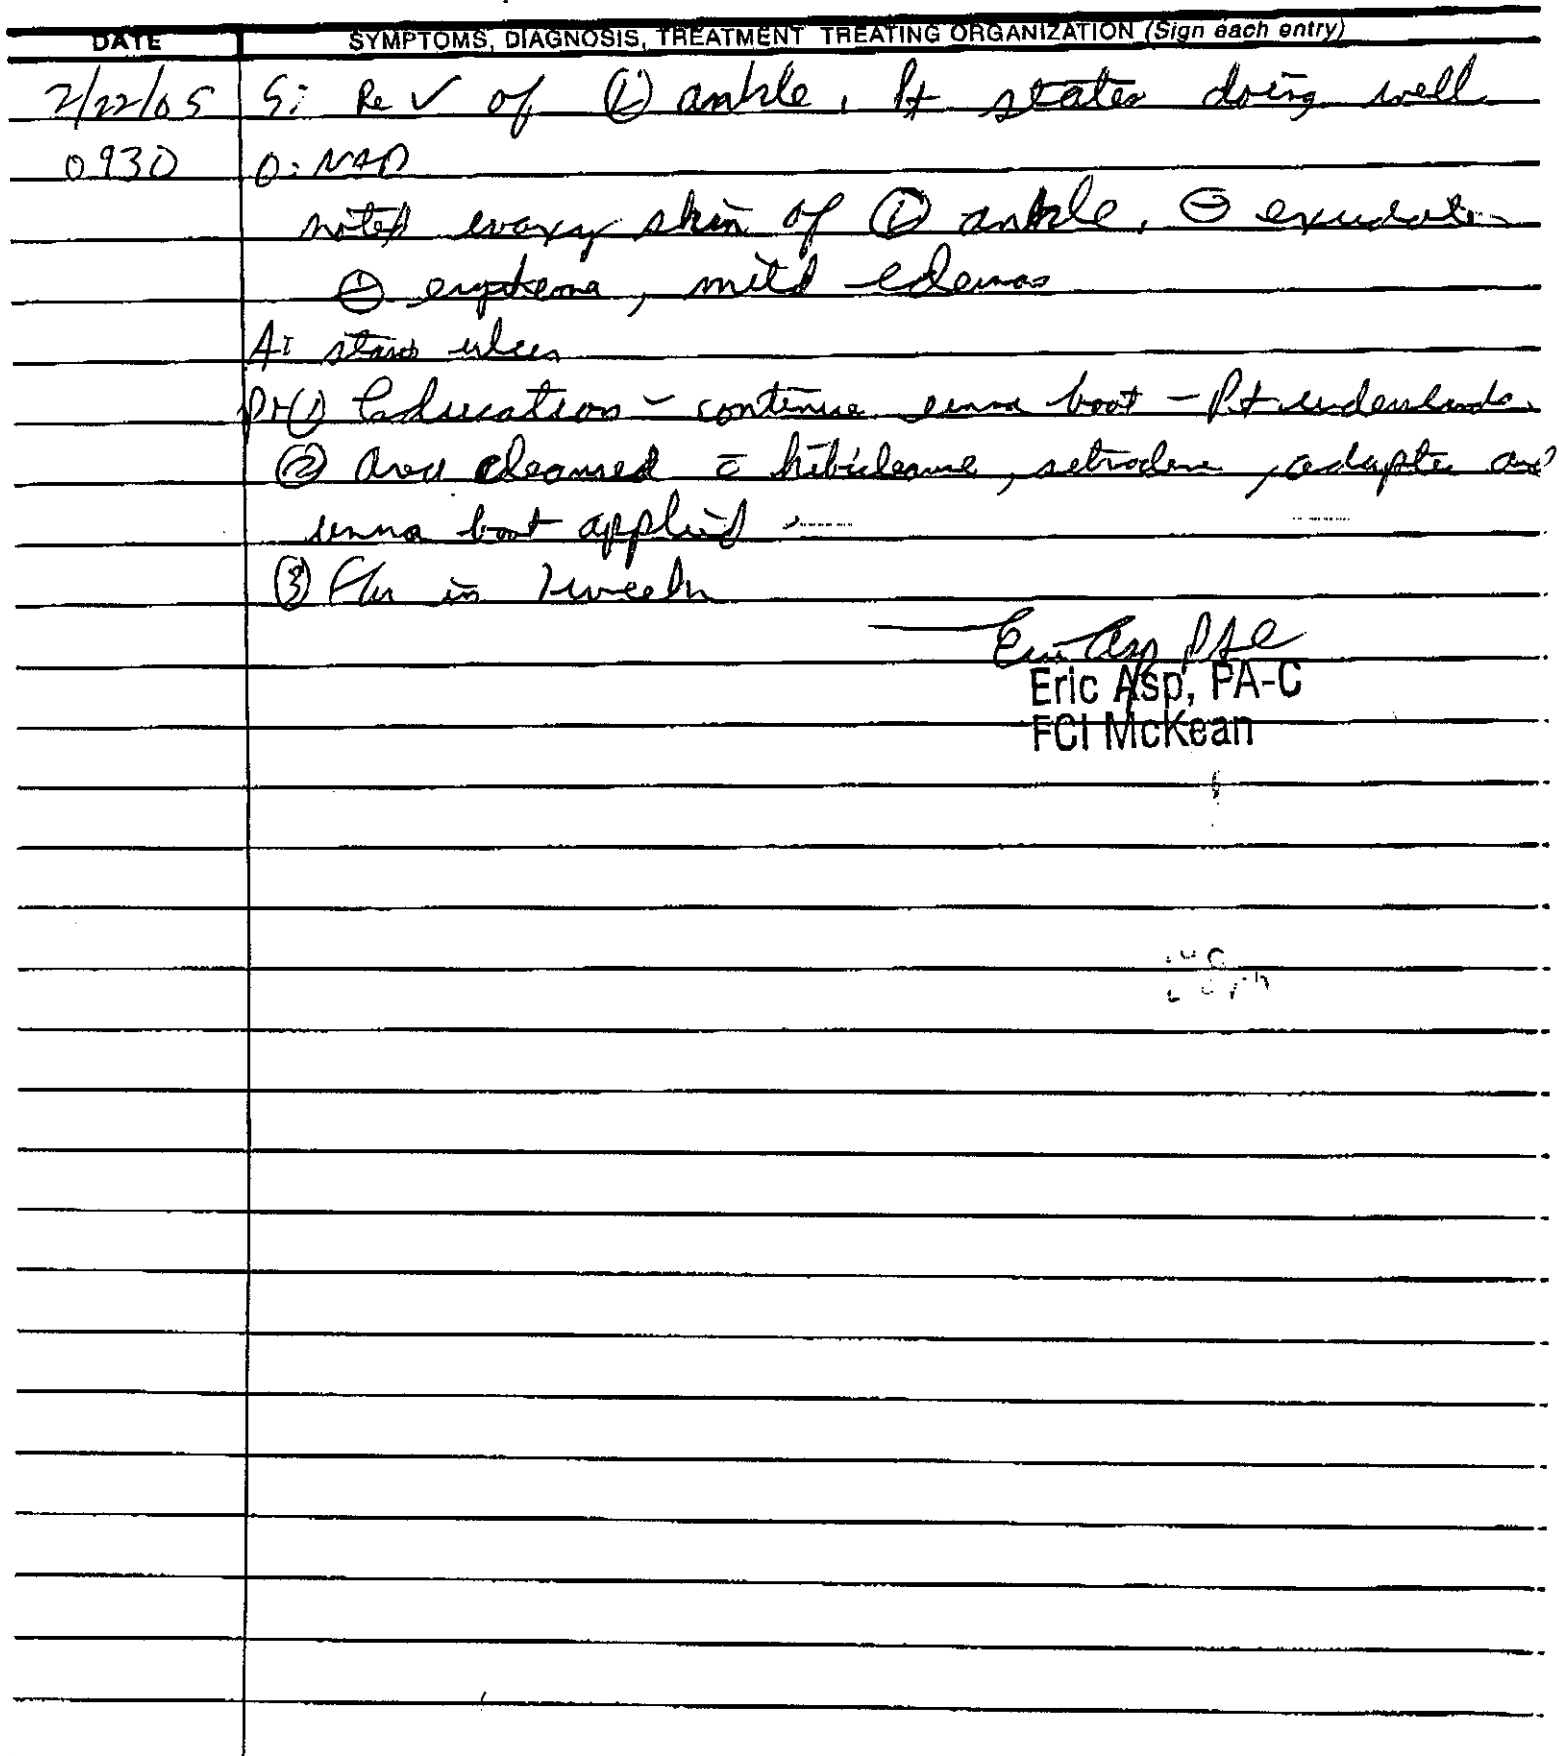 DATE SYMPTOMS, DIAGNOSIS, TREATMENT TREATING ORGANIZATION (Sign each entry)
2/22/05 S: Re ✓ of Ⓛ ankle, Pt states doing well
0930 O: NAD
noted waxy skin of Ⓛ ankle, ⊖ exudate
⊖ erythema, mild edema
A: stasis ulcer
P: ① Education - continue unna boot - Pt understands.
② area cleansed c̄ hibicleanse, silvadene, adaptic and
unna boot applied
③ F/u in 1 week
Eric Asp PAC
Eric Asp, PA-C
FCI McKean